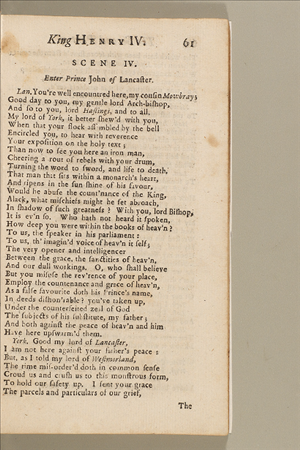 King HENRY IV. 61
SCENE IV.
Enter Prince John of Lancaſter.
Lan. You're well encountred here, my couſin Mowbray;
Good day to you, my gentle lord Arch-biſhop,
And ſo to you, lord Haſtings, and to all.
My lord of York, it better ſhew'd with you,
When that your flock aſſembled by the bell
Encircled you, to hear with reverence
Your expoſition on the holy text;
Than now to ſee you here an iron man,
Cheering a rout of rebels with your drum,
Turning the word to ſword, and life to death,
That man that ſits within a monarch's heart,
And ripens in the ſun ſhine of his favour,
Would he abuſe the count'nance of the King,
Alack, what miſchiefs might he ſet abroach,
In ſhadow of ſuch greatneſs? With you, lord Biſhop,
It is ev'n ſo. Who hath not heard it ſpoken,
How deep you were within the books of heav'n?
To us, the ſpeaker in his parliament:
To us, th' imagin'd voice of heav'n it ſelf;
The very opener and intelligencer
Between the grace, the ſanctities of heav'n,
And our dull workings. O, who ſhall believe
But you miſuſe the rev'rence of your place,
Employ the countenance and grace of heav'n,
As a falſe favourite doth his Prince's name,
In deeds diſhon'rable? you've taken up,
Under the counterfeited zeal of God
The ſubjects of his ſubſtitute, my father;
And both againſt the peace of heav'n and him
Have here upſwarm'd them.
York. Good my lord of Lancaſter,
I am not here againſt your father's peace:
But, as I told my lord of Weſtmorland,
The time miſ-order'd doth in common ſenſe
Croud us and cruſh us to this monſtrous form,
To hold our ſafety up. I ſent your grace
The parcels and particulars of our grief,
The